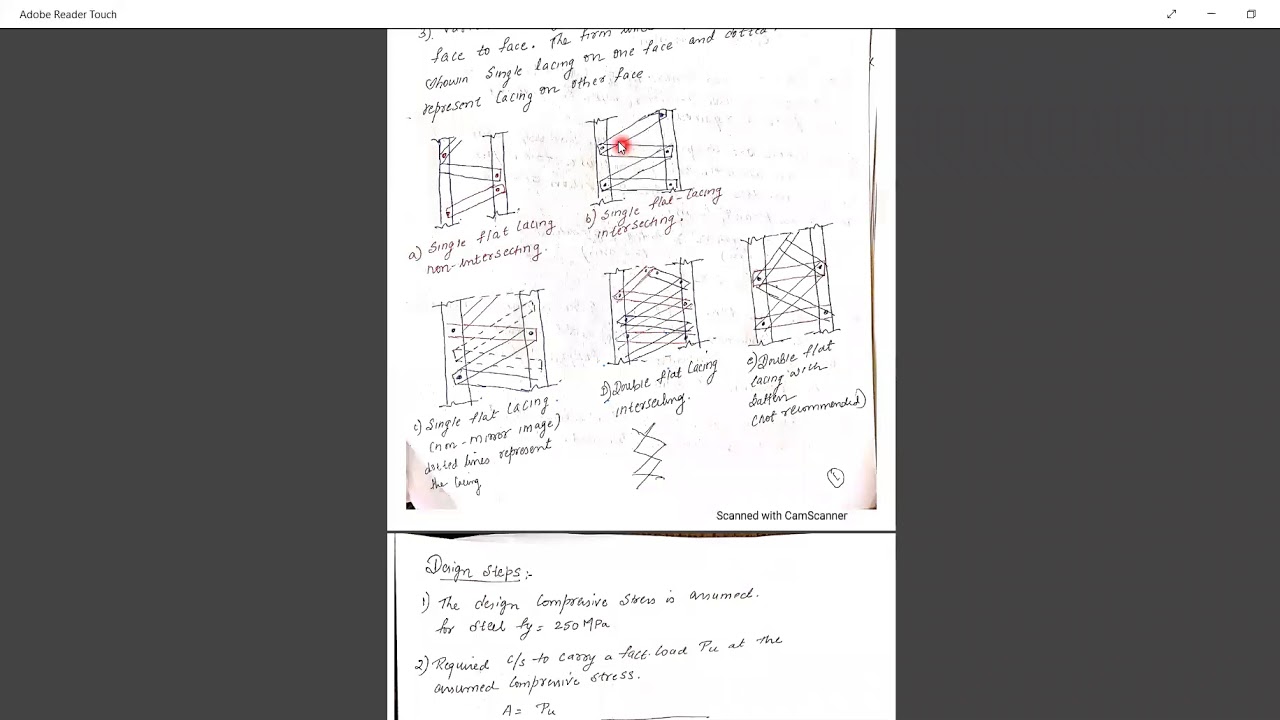 Adobe Reader Touch
3).
face to face. The firm
shown single lacing on one face and dotted
represent lacing on other face.
a) Single flat lacing
non-intersecting.
b) Single flat-lacing
intersecting.
c) Single flat lacing.
(non-mirror image)
dotted lines represent
the lacing
D) Double flat lacing
intersecting.
e) Double flat
lacing with
batten
(not recommended)
Scanned with CamScanner
Design Steps:-
1) The design compressive stress is assumed.
for steel fy = 250 MPa
2) Required c/s to carry a fact. load Pu at the
assumed compressive stress.
A = Pu